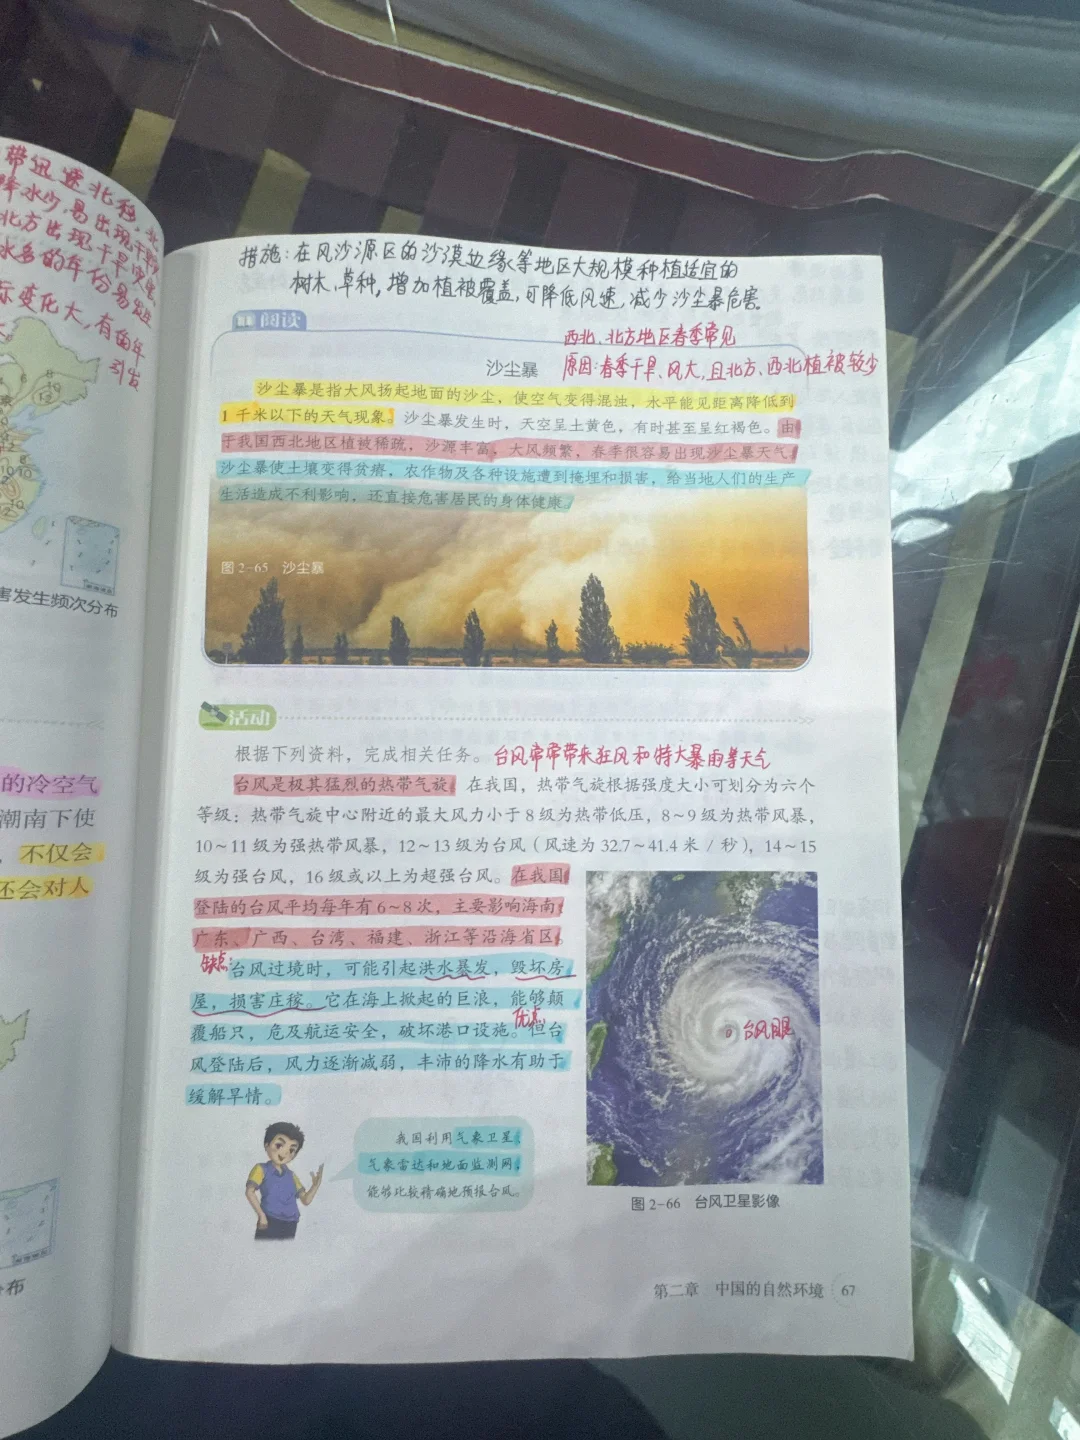 带迅速北移,北
降水少,易出现干旱
北方出现干旱灾害
水多的年份易发生
际变化大,有的年
引发
害发生频次分布
的冷空气
潮南下使
,不仅会
还会对人
布
措施:在风沙源区的沙漠边缘等地区大规模种植适宜的
树木、草种,增加植被覆盖,可降低风速,减少沙尘暴危害。
阅读
西北、北方地区春季常见
沙尘暴 原因:春季干旱、风大,且北方、西北植被较少
沙尘暴是指大风扬起地面的沙尘,使空气变得混浊,水平能见距离降低到
1 千米以下的天气现象。沙尘暴发生时,天空呈土黄色,有时甚至呈红褐色。由
于我国西北地区植被稀疏,沙源丰富,大风频繁,春季很容易出现沙尘暴天气。
沙尘暴使土壤变得贫瘠,农作物及各种设施遭到掩埋和损害,给当地人们的生产
生活造成不利影响,还直接危害居民的身体健康。
图 2-65 沙尘暴
活动
根据下列资料,完成相关任务。 台风常常带来狂风和特大暴雨等天气
台风是极其猛烈的热带气旋。在我国,热带气旋根据强度大小可划分为六个
等级:热带气旋中心附近的最大风力小于 8 级为热带低压,8~9 级为热带风暴,
10~11 级为强热带风暴,12~13 级为台风(风速为 32.7~41.4 米 / 秒),14~15
级为强台风,16 级或以上为超强台风。在我国
登陆的台风平均每年有 6~8 次,主要影响海南、
广东、广西、台湾、福建、浙江等沿海省区。
缺点:台风过境时,可能引起洪水暴发,毁坏房
屋,损害庄稼。它在海上掀起的巨浪,能够颠
优点
覆船只,危及航运安全,破坏港口设施。但台
风登陆后,风力逐渐减弱,丰沛的降水有助于
缓解旱情。
台风眼
我国利用气象卫星、
气象雷达和地面监测网,
能够比较精确地预报台风。
图 2-66 台风卫星影像
第二章 中国的自然环境 67